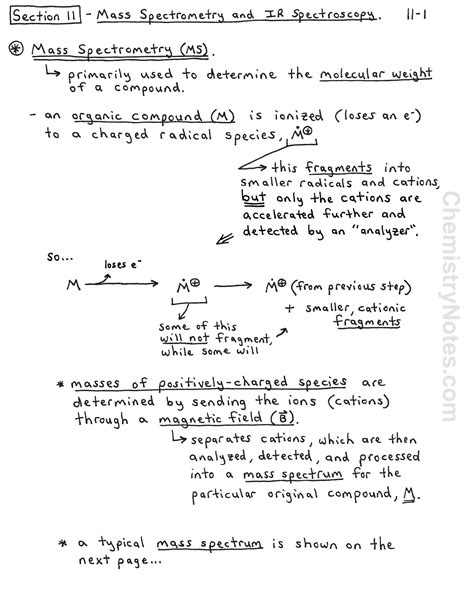 Section 11 - Mass Spectrometry and IR Spectroscopy. 11-1
⊛ Mass Spectrometry (MS).
↳ primarily used to determine the molecular weight
of a compound.
- an organic compound (M) is ionized (loses an e⁻)
to a charged radical species, Ṁ⊕
→ this fragments into
smaller radicals and cations,
but only the cations are
accelerated further and
detected by an "analyzer".
so...
loses e⁻
M → Ṁ⊕ → Ṁ⊕ (from previous step)
+ smaller, cationic
fragments
some of this
will not fragment,
while some will
* masses of positively-charged species are
determined by sending the ions (cations)
through a magnetic field (B⃗).
↳ separates cations, which are then
analyzed, detected, and processed
into a mass spectrum for the
particular original compound, M.
* a typical mass spectrum is shown on the
next page...
ChemistryNotes.com